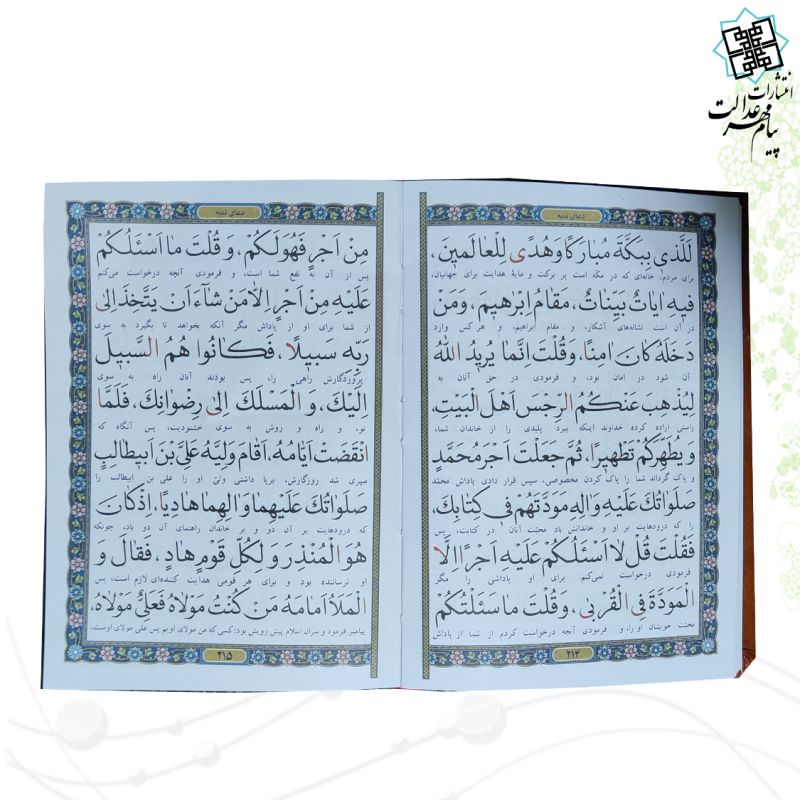 انتشارات
پیام مهر عدالت
دعای ندبه
لَلَّذی بِبَكَّةَ مُبارَكًا وَ هُدًى لِلْعالَمینَ،
برای مردم؛ خانه‌ای که در مکّه است پر برکت و مایهٔ هدایت برای جهانیان،
فیهِ ایاتٌ بَیِّناتٌ، مَقامُ اِبْرهیمَ، وَمَنْ
در آن است نشانه‌های آشکار، و مقام ابراهیم، و هر کس وارد
دَخَلَهُ كانَ امِنًا، وَ قُلْتَ اِنَّما یُریدُ اللهُ
آن شود در امان بود، و فرمودی در حق آنان به
لِیُذْهِبَ عَنْكُمُ الرِّجْسَ اَهْلَ الْبَیْتِ،
راستی اراده کرده خداوند اینکه ببرد پلیدی را از خاندان شما،
وَ یُطَهِّرَكُمْ تَطْهیرًا، ثُمَّ جَعَلْتَ اَجْرَ مُحَمَّدٍ
و پاک گرداند شما را پاک کردن مخصوصی، سپس قرار دادی پاداش محمّد
صَلَواتُكَ عَلَیْهِ وَ الِهِ مَوَدَّتَهُمْ فی كِتابِكَ،
را که درودهایت بر او و خاندانش باد محبّت آنان در کتابت، پس
فَقُلْتَ قُلْ لا اَسْئَلُكُمْ عَلَیْهِ اَجْرًا اِلَّا
فرمودی درخواست نمی‌کنم برای او پاداشی را مگر
الْمَوَدَّةَ فِی الْقُرْبى، وَ قُلْتَ ما سَئَلْتُكُمْ
محبّت خویشان او را، و فرمودی آنچه درخواست کردم از شما از پاداش
۲۱۴
دعای ندبه
مِنْ اَجْرٍ فَهُوَ لَكُمْ، وَ قُلْتَ ما اَسْئَلُكُمْ
پس از آن به نفع شما است، و فرمودی آنچه درخواست می‌کنم
عَلَیْهِ مِنْ اَجْرٍ اِلّا مَنْ شآءَ اَنْ یَتَّخِذَ اِلى
از شما برای او از پاداش مگر آنکه بخواهد تا بگیرد به سوی
رَبِّهِ سَبیلًا، فَكانُوا هُمُ السَّبیلَ
پروردگارش راهی را، پس بودند آنان راه به سوی
اِلَیْكَ، وَ الْمَسْلَكَ اِلى رِضْوانِكَ، فَلَمَّا
تو، و راه و روش به سوی خشنودیت، پس آنگاه که
انْقَضَتْ اَیّامُهُ، اَقامَ وَلِیَّهُ عَلِیَّ بْنَ اَبیطالِبٍ
سپری شد روزگارش، برپا داشتی ولیّ او را علی بن ابیطالب را
صَلَواتُكَ عَلَیْهِما وَ الِهِما هادِیًا، اِذْ كانَ
که درودهایت بر آن دو و بر خاندان راهنمای آن دو باد، چونکه
هُوَ الْمُنْذِرَ وَ لِكُلِّ قَوْمٍ هادٍ، فَقالَ وَ
او ترساننده بود و برای هر قومی هدایت کننده‌ای لازم است، پس
الْمَلَأُ اَمامَهُ مَنْ كُنْتُ مَوْلاهُ فَعَلِیٌّ مَوْلاهُ،
پیامبر فرمود و سران اسلام پیش رویش بود: کسی که من مولای اویم پس علی مولای اوست،
۲۱۵